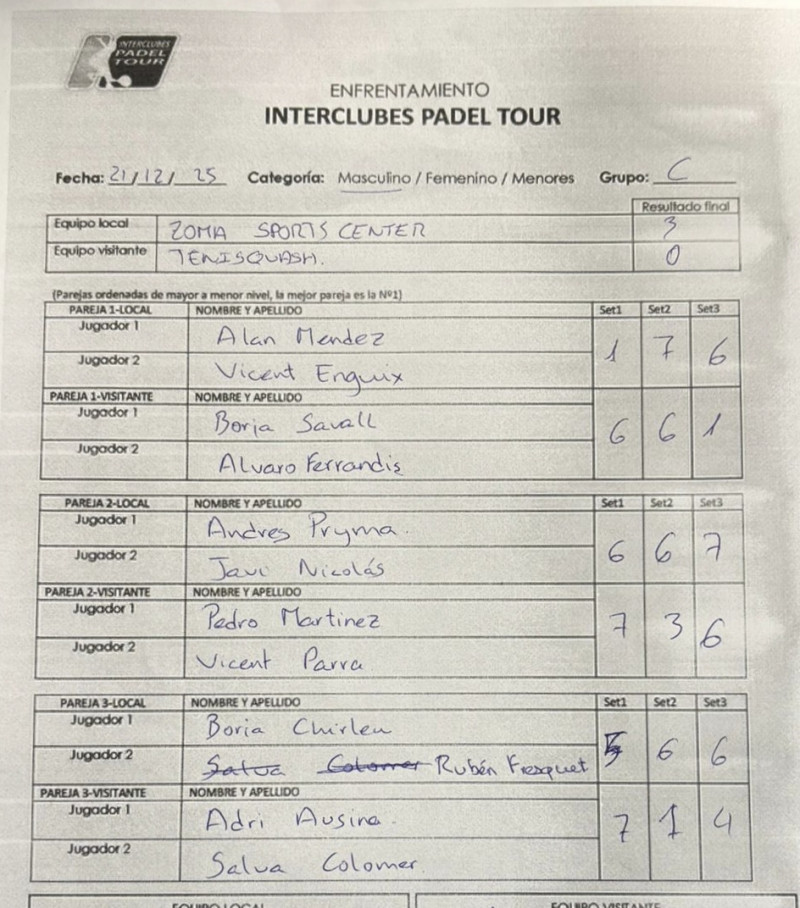 INTERCLUBES
PADEL
TOUR
ENFRENTAMIENTO
INTERCLUBES PADEL TOUR
Fecha: 21/12/ 25 Categoría: Masculino / Femenino / Menores Grupo: C
Resultado final
Equipo local ZOMA SPORTS CENTER 3
Equipo visitante TENISQUASH. 0
(Parejas ordenadas de mayor a menor nivel, la mejor pareja es la Nº1)
PAREJA 1-LOCAL NOMBRE Y APELLIDO Set1 Set2 Set3
Jugador 1 Alan Mendez
1 7 6
Jugador 2 Vicent Enguix
PAREJA 1-VISITANTE NOMBRE Y APELLIDO
Jugador 1 Borja Savall
6 6 1
Jugador 2 Alvaro Ferrandis
PAREJA 2-LOCAL NOMBRE Y APELLIDO Set1 Set2 Set3
Jugador 1 Andres Pryma.
6 6 7
Jugador 2 Javi Nicolás
PAREJA 2-VISITANTE NOMBRE Y APELLIDO
Jugador 1 Pedro Martinez
7 3 6
Jugador 2 Vicent Parra
PAREJA 3-LOCAL NOMBRE Y APELLIDO Set1 Set2 Set3
Jugador 1 Borja
5 6 6
Jugador 2 Salva Colomer Rubén Fresquet
PAREJA 3-VISITANTE NOMBRE Y APELLIDO
Jugador 1 Adri Ausina.
7 1 4
Jugador 2 Salva Colomer.
EQUIPO LOCAL EQUIPO VISITANTE